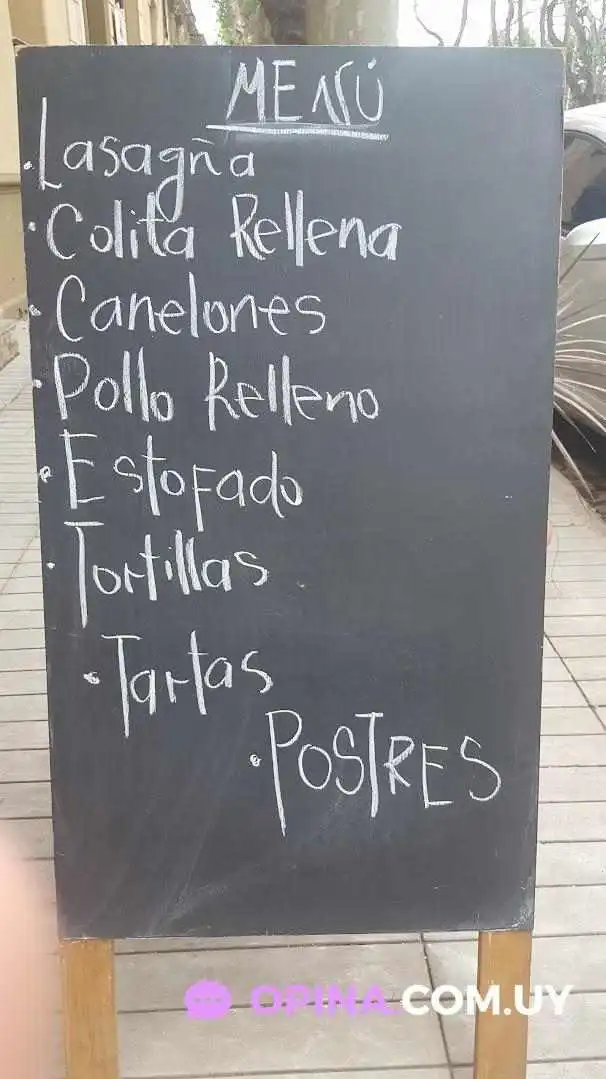 MENÚ
·Lasagña
·Colita Rellena
·Canelones
·Pollo Relleno
·Estofado
·Tortillas
·Tartas
·POSTRES
OPINA.COM.UY